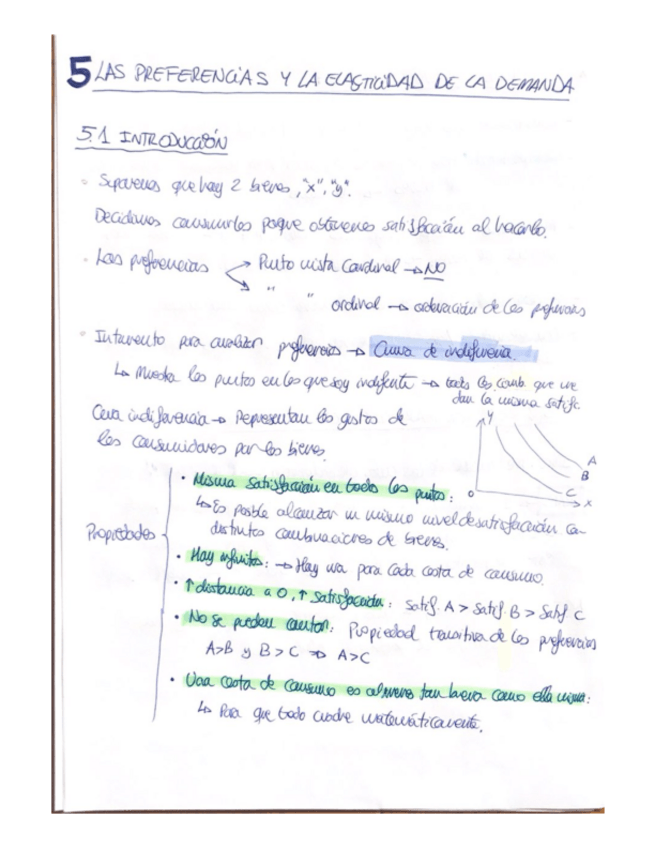 5 LAS PREFERENCIAS Y LA ELASTICIDAD DE LA DEMANDA
5.1 INTRODUCCIÓN
• Suponemos que hay 2 bienes, "x", "y".
Decidimos consumirlos porque obtenemos satisfacción al hacerlo.
• Las preferencias → Punto vista Cardinal → NO
" " ordinal → ordenación de las preferencias
• Instrumento para analizar preferencias → Curva de indiferencia.
↳ Muestra los puntos en los que soy indiferente → todas las comb. que me
dan la misma satisf.
Curva indiferencia → Representan los gustos de
los consumidores por los bienes.
y
A
B
C
0
x
Propiedades
• Misma satisfacción en todos los puntos:
↳ Es posible alcanzar un mismo nivel de satisfacción con
distintas combinaciones de bienes.
• Hay infinitas: → Hay una para cada cesta de consumo.
• ↑ distancia a 0, ↑ satisfacción: Satisf. A > Satisf. B > Satisf. C
• No se pueden cortar: Propiedad transitiva de las preferencias
A>B y B>C ⇒ A>C
• Una cesta de consumo es al menos tan buena como ella misma:
↳ Para que todo cuadre matemáticamente.